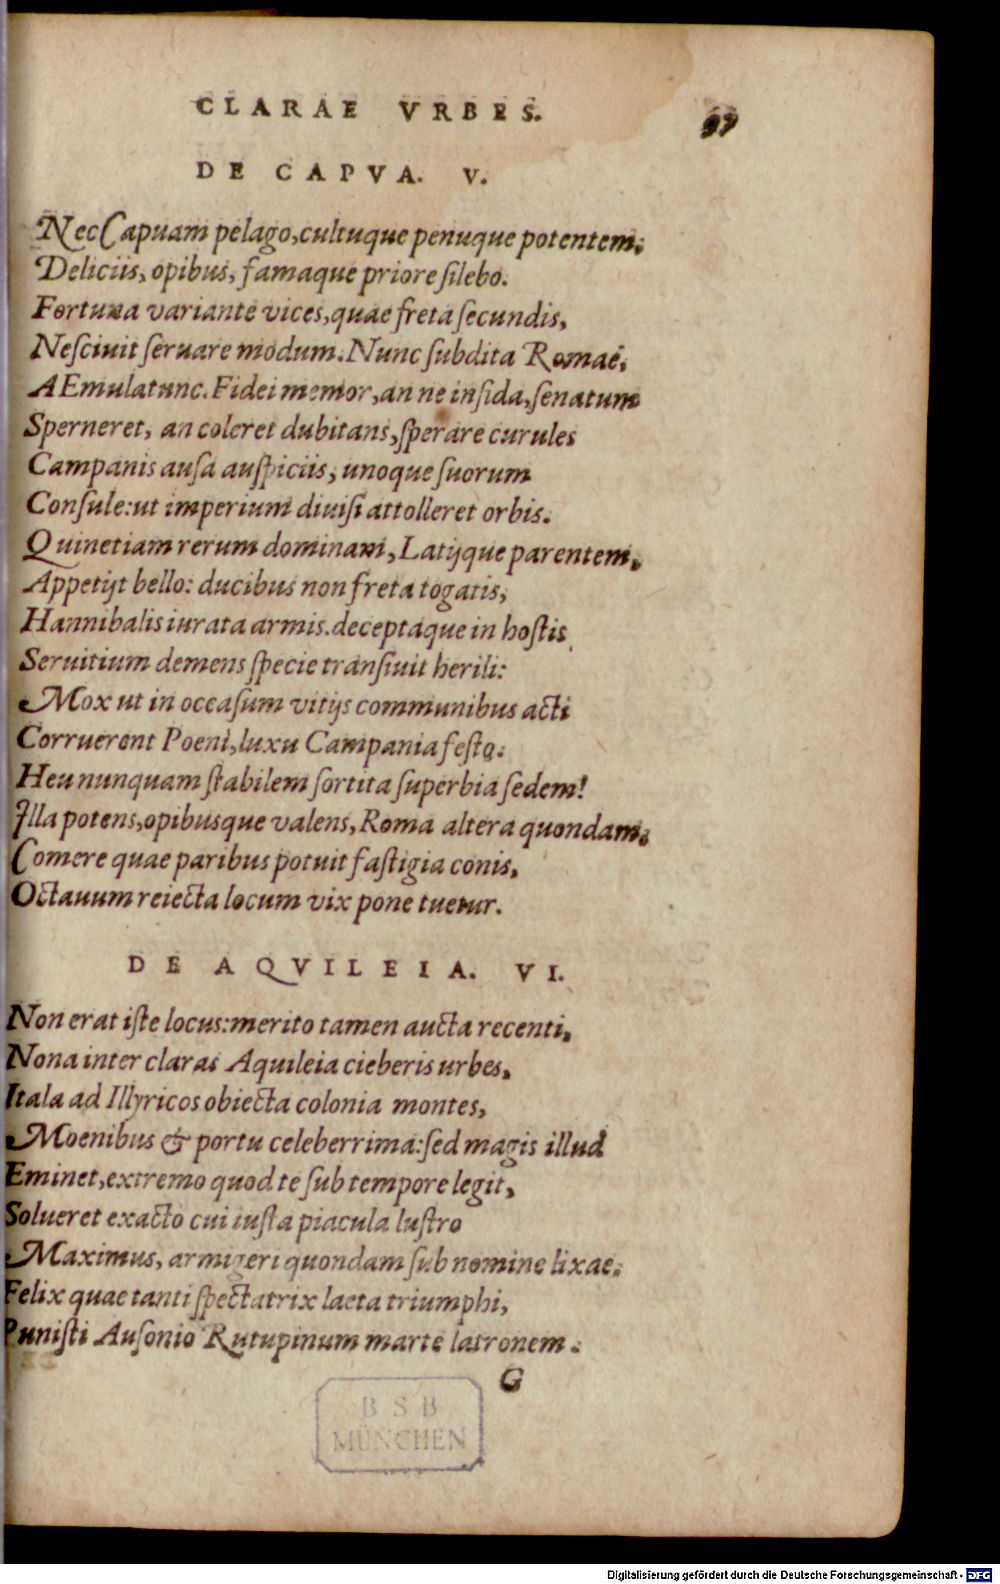 CLARAE VRBES.
97
DE CAPVA. V.
Nec Capuam pelago, cultuque penuque potentem,
Deliciis, opibus, famaque priore ſilebo.
Fortuna variante vices, quae freta ſecundis,
Neſciuit ſeruare modum. Nunc ſubdita Romae,
AEmula tunc. Fidei memor, an ne inſida, ſenatum
Sperneret, an coleret dubitans, ſperare curules
Campanis auſa auſpiciis, unoque ſuorum
Conſule: ut imperium diuiſi attolleret orbis.
Quinetiam rerum dominam, Latijque parentem,
Appetijt bello: ducibus non freta togatis,
Hannibalis iurata armis. deceptaque in hoſtis
Seruitium demens ſpecie tranſiuit herili:
Mox ut in occaſum vitijs communibus acti
Corruerent Poeni, luxu Campania feſto.
Heu nunquam ſtabilem ſortita ſuperbia ſedem!
Illa potens, opibusque valens, Roma altera quondam,
Comere quae paribus potuit faſtigia conis,
Octauum reiecta locum vix pone tuetur.
DE AQVILEIA. VI.
Non erat iſte locus: merito tamen aucta recenti,
Nona inter claras Aquileia cieberis urbes,
Itala ad Illyricos obiecta colonia montes,
Moenibus & portu celeberrima: ſed magis illud
Eminet, extremo quod te ſub tempore legit,
Solueret exacto cui iuſta piacula luſtro
Maximus, armigeri quondam ſub nomine lixae.
Felix quae tanti ſpectatrix laeta triumphi,
Puniſti Auſonio Rutupinum marte latronem.
G
BSB
MÜNCHEN
Digitalisierung gefördert durch die Deutsche Forschungsgemeinschaft - DFG